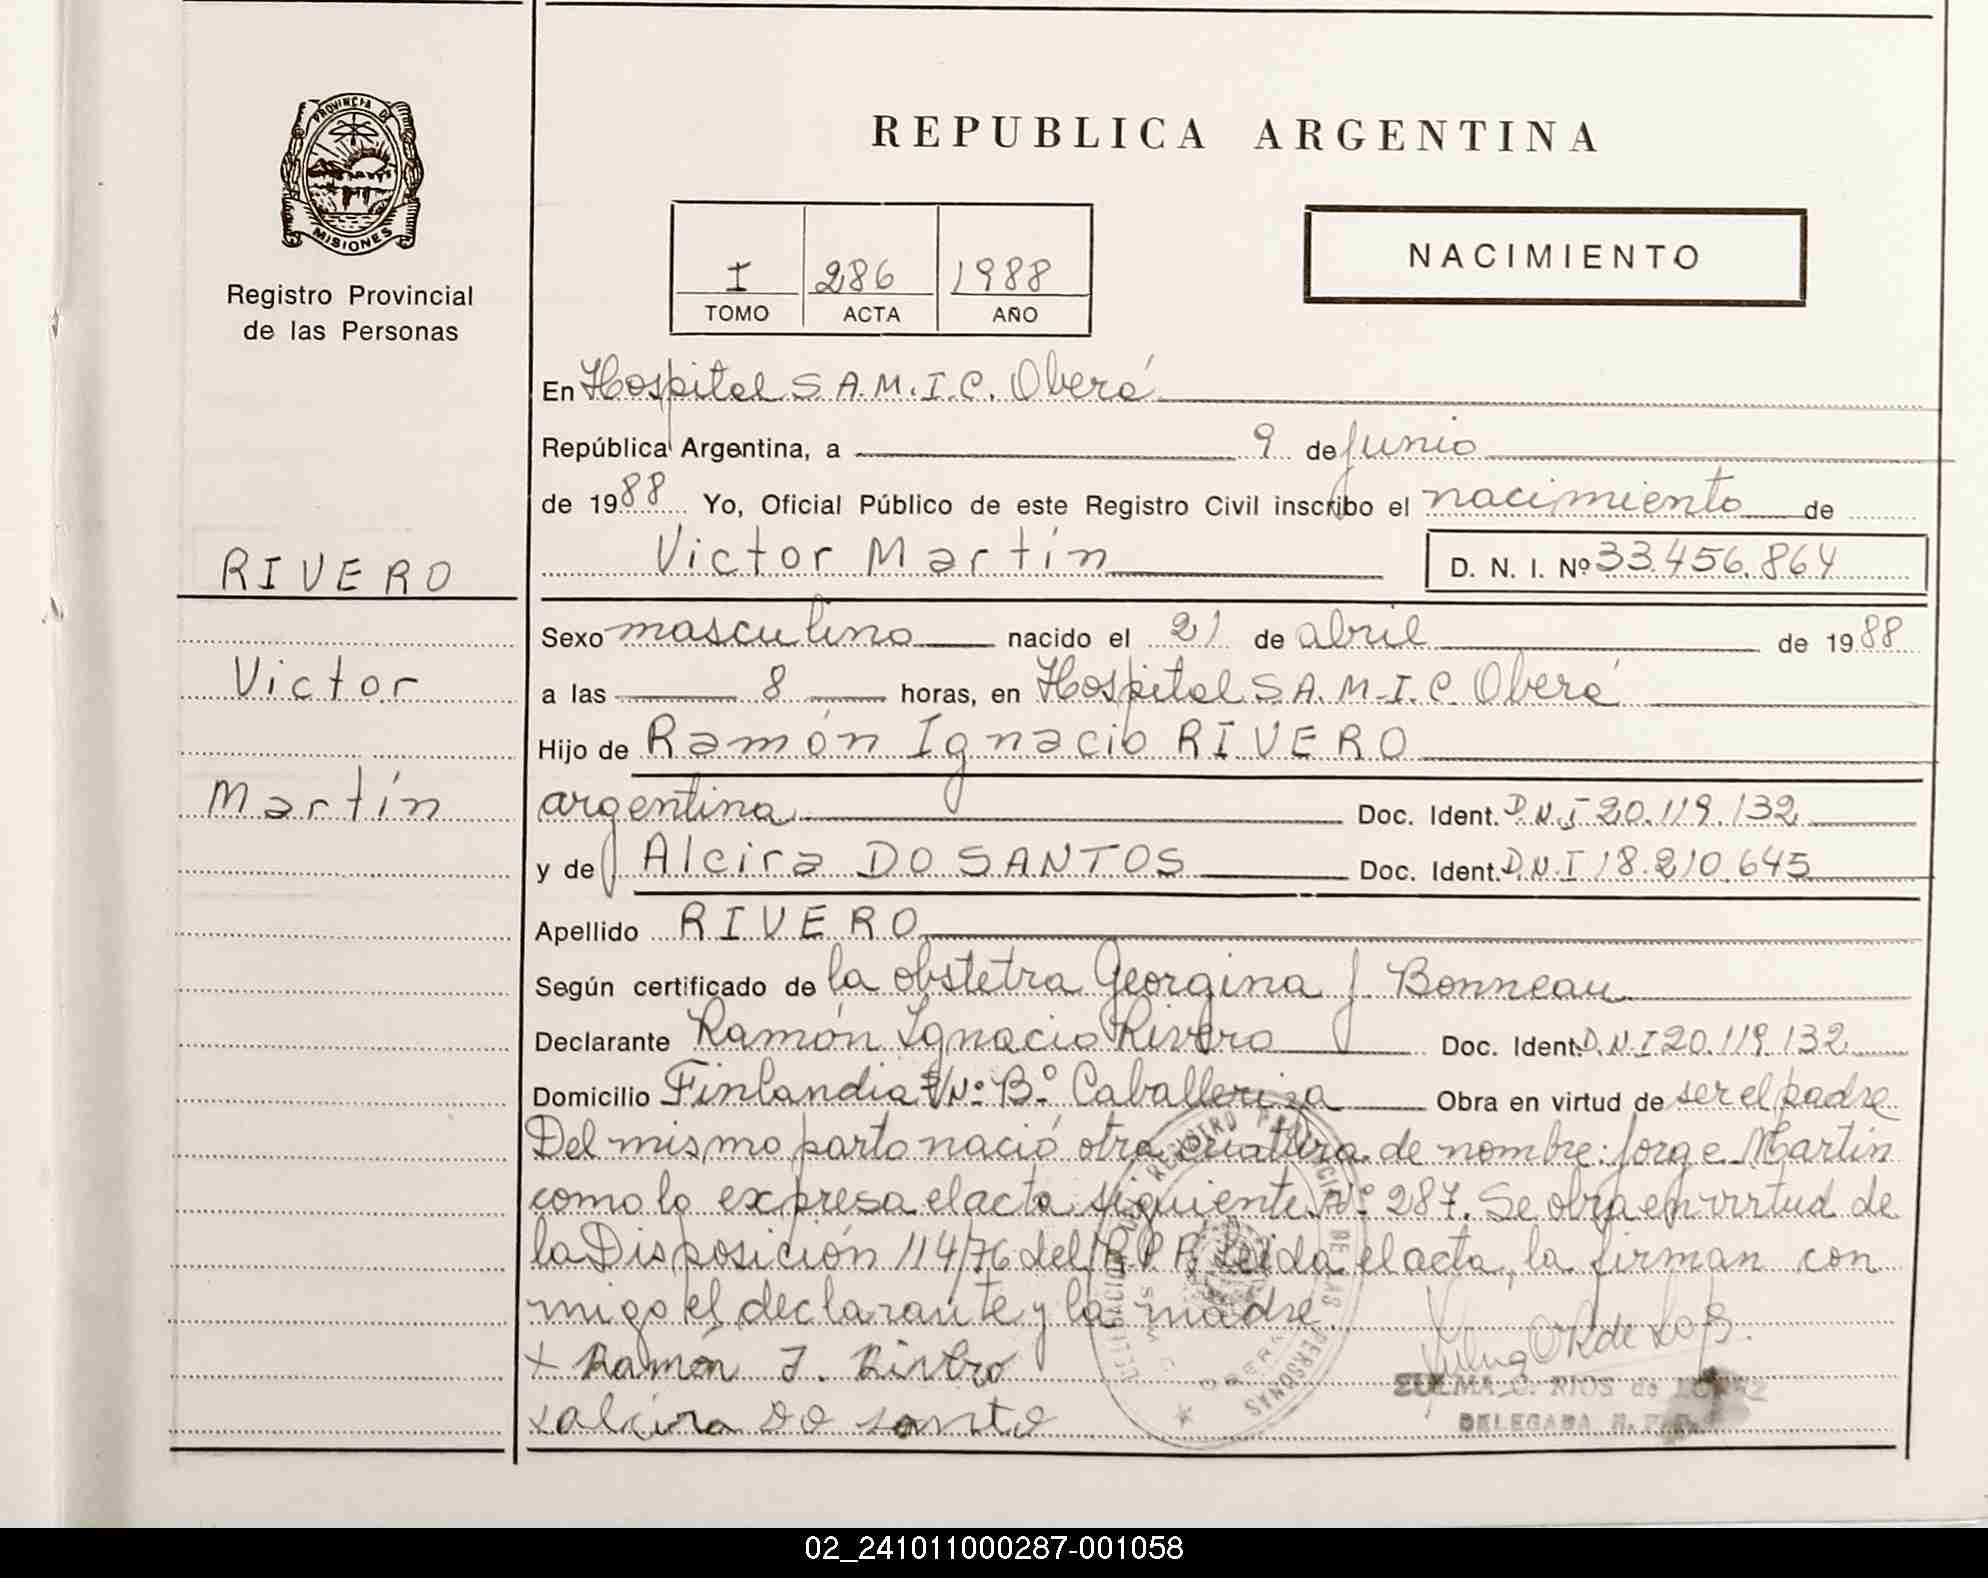 PROVINCIA DE
MISIONES
Registro Provincial
de las Personas
RIVERO
Victor
Martín
REPUBLICA ARGENTINA
I 286 1988
TOMO ACTA AÑO
NACIMIENTO
En Hospital S.A.M.I.C. Oberá
República Argentina, a 9 de Junio
de 1988 Yo, Oficial Público de este Registro Civil inscribo el nacimiento de
Victor Martín D. N. I. Nº 33.456.864
Sexo masculino nacido el 21 de abril de 1988
a las 8 horas, en Hospital S.A.M.I.C. Oberá
Hijo de Ramón Ignacio RIVERO
argentina Doc. Ident. D.N.I 20.119.132
y de Alcira DO SANTOS Doc. Ident. D.N.I 18.210.645
Apellido RIVERO
Según certificado de la obstetra Georgina J. Bonneau
Declarante Ramón Ignacio Rivero Doc. Ident. D.N.I 20.119.132
Domicilio Finlandia S/Nº Bº Caballeriza Obra en virtud de ser el padre
Del mismo parto nació otra criatura de nombre: Jorge Martín
como lo expresa el acta siguiente Nº 287. Se obra en virtud de
la Disposición 114/76 del R.P.P. Leida el acta, la firman con
migo el declarante y la madre.
+ Ramón I. Rivero
x alcira DO santo
ZULMA C. RIOS de LOPEZ
DELEGADA R.P.P.
REGISTRO PROVINCIAL DE LAS PERSONAS
02_241011000287-001058